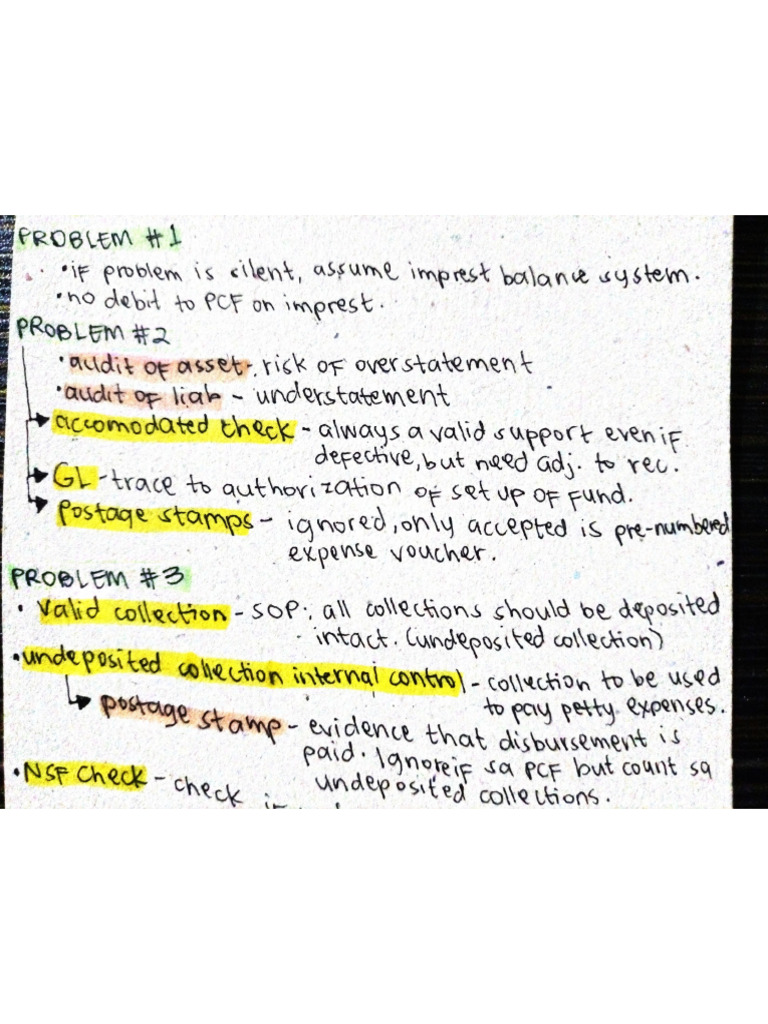 PROBLEM #1
• if problem is silent, assume imprest balance system.
• no debit to PCF on imprest.
PROBLEM #2
• audit of asset - risk of overstatement
• audit of liab - understatement
accomodated check - always a valid support even if
defective, but need adj. to rec.
GL - trace to authorization of set up of fund.
Postage stamps - ignored, only accepted is pre-numbered
expense voucher.
PROBLEM #3
• valid collection - SOP; all collections should be deposited
intact. (undeposited collection)
• undeposited collection internal control - collection to be used
to pay petty expenses.
postage stamp - evidence that disbursement is
paid. Ignore if sa PCF but count sa
undeposited collections.
• NSF check - check